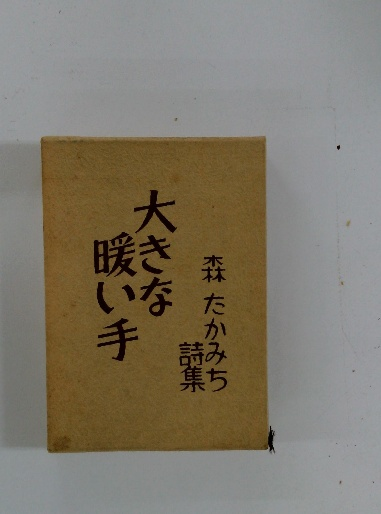 森 たかみち
詩集
大きな
暖い手